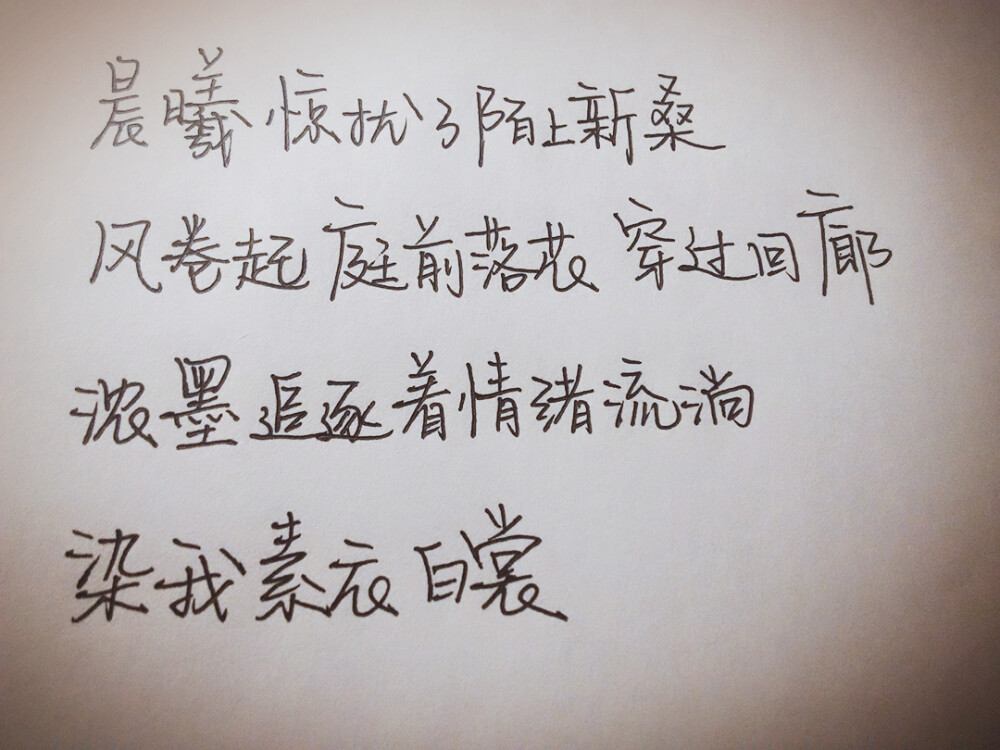 晨曦惊扰了陌上新桑
风卷起庭前落花穿过回廊
浓墨追逐着情绪流淌
染我素衣白裳